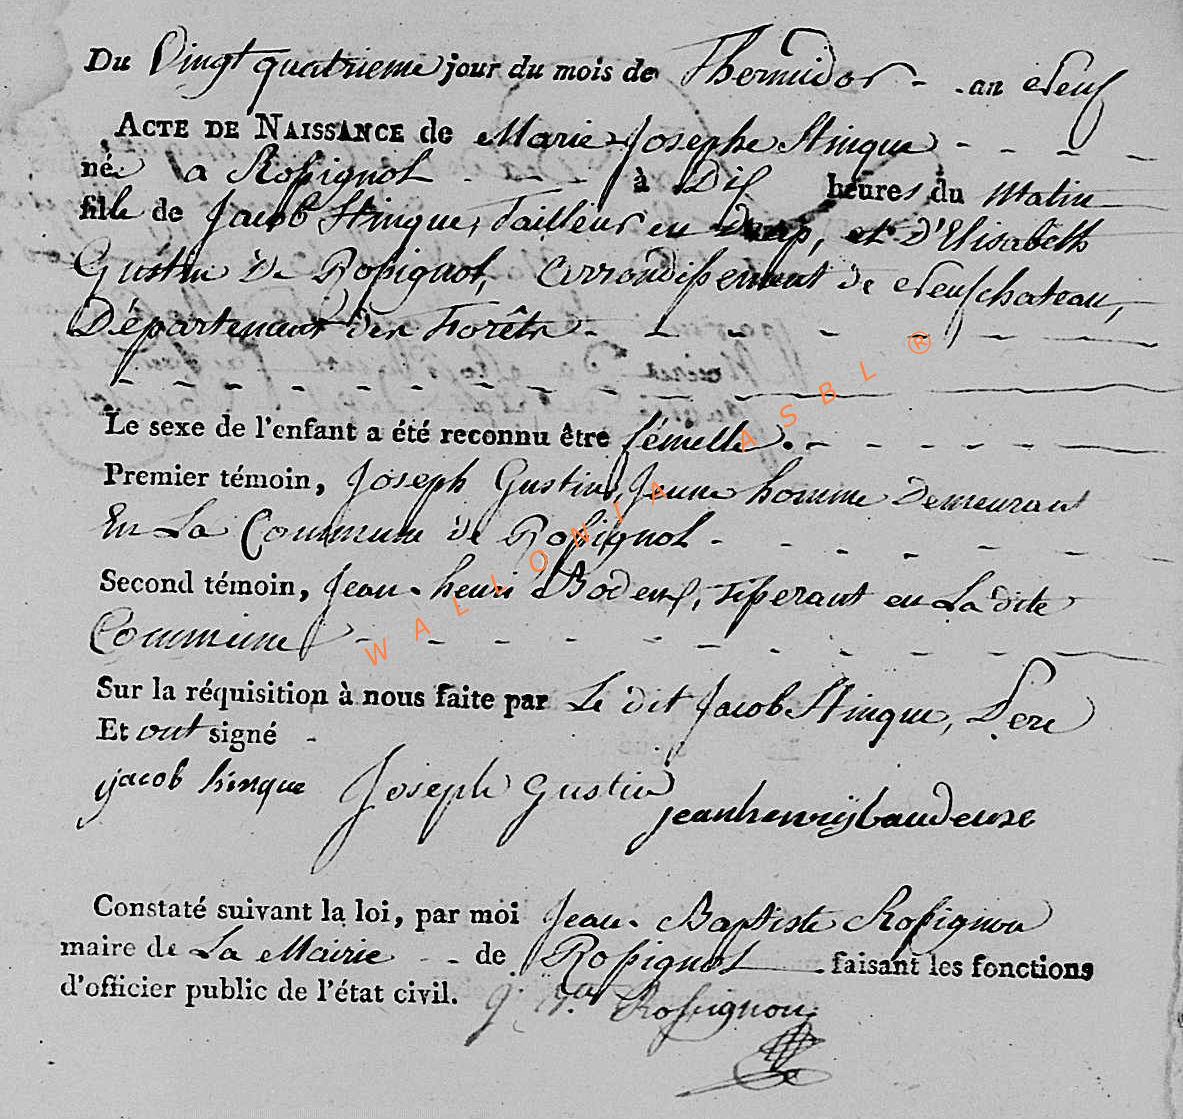 Du Vingt quatrieme jour du mois de Thermidor - . an Neuf
ACTE DE NAISSANCE de Marie Josephe Hinque - - - -
née a Rossignol - - - à Dix heures du Matin
fille de Jacob Hinque, Tailleur en , et D'Elisabeth
Gustin de Rossignol, arrondissement de Neufchateau,
Département des Forêts - - - - - - -
- - - - - - - - - -
Le sexe de l'enfant a été reconnu être fémelle. - - - - -
Premier témoin, Joseph Gustin, Jeune homme Demeurant
En La Commune de Rossignol - - - - - -
Second témoin, Jean-henri , Tisserant en La dite
Commune - - - - - - - -
Sur la réquisition à nous faite par Le dit Jacob Hinque, Pere
Et ont signé -
jacob hinque Joseph Gustin jeanhenrijbaudeuxe
Constaté suivant la loi, par moi Jean-Baptiste Rossignon
maire de La Mairie - - de Rossignol faisant les fonctions
d'officier public de l'état civil. Rossignon
WALLONIA ASBL ®